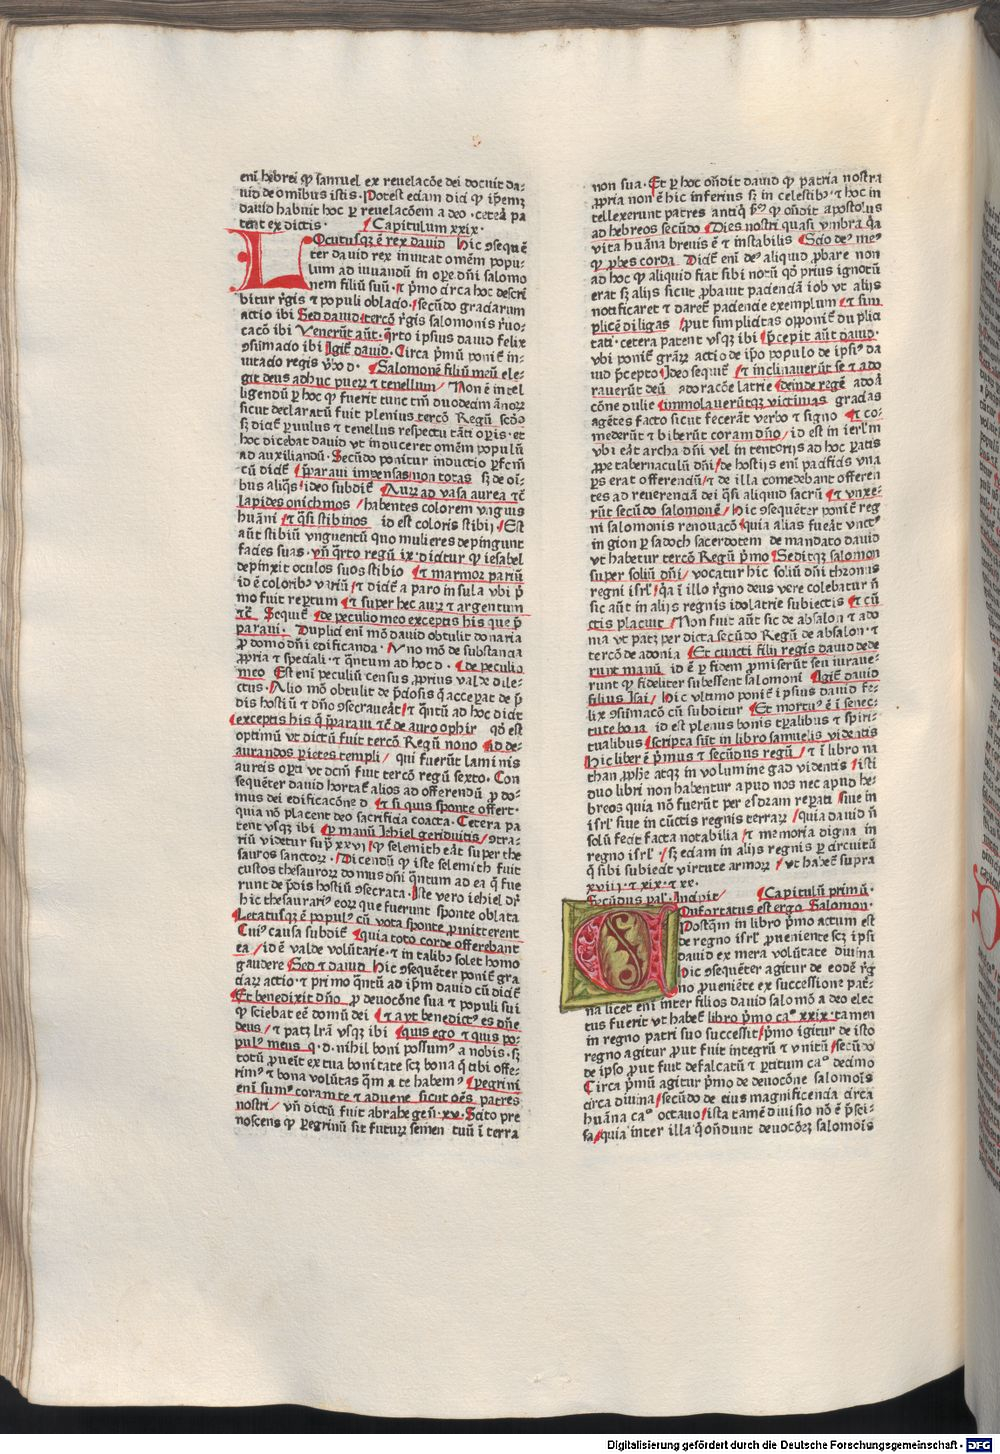 enī hebrei ꝙ samuel ex reuelacōe dei docuit da-
uid de omībus istis. Potest eciam dici ꝙ ip̄emꝫ
dauid habuit hoc ꝑ reuelacōem a deo. cetera pa
tent ex dictis. Capitulum xxix.
LOcutusqꝫ ē rex dauid Hic ↄsequē
ter dauid rex inuitat omēm popu-
lum ad iuuandū in oꝑe dn̄i salomo
nem filiū suū. ⁊ pͥmo circa hoc descri
bitur rͤgis ⁊ populi oblacio. secūdo graciarum
actio ibi Sed dauid. tercō rͤgis salomonis rͤuo-
cacō ibi Venerūt aūt. qͣrto ipsius dauid felix
ↄsūmacio ibi Igit̄ dauid. Circa pͥmū ponit̄ in-
uitacio regis Salomonē filiū meū ele-
git deus adhuc pueꝝ ⁊ tenellum Non ē intel
ligendū ꝑ hoc ꝙ fuerit tunc tm̄ duodecim ānoꝝ
sicut declaratū fuit plenius tercō Regū scd̄o
sꝫ dicit̄ ꝑuulus ⁊ tenellus respectu tāti oꝑis. et
hoc dicebat dauid vt induceret omēm populū
ad auxiliandū. Secūdo ponitur inductio
cū dicit̄ p̄paraui impensas non totas sꝫ de oī-
bus aliqͣs ideo subdit̄ Auꝝ ad vasa aurea ⁊c̄
lapides onichinos habentes colorem vnguis
huāni ⁊ qͣsi stibinos id est coloris stibij. Est
aūt stibiū vnguentū quo mulieres depingunt
facies suas. vn̄ qͣrto regū ix. dicitur ꝙ iesabel
depinxit oculos suos stibio ⁊ marmor pariū
id ē coloribꝰ variū ⁊ dicit̄ a paro insula vbi pͥ
mo fuit reꝑtum ⁊ super hec auꝝ ⁊ argentum
⁊c̄ Sequit̄ de peculio meo exceptis his que p̄
paraui. Duplici enī mō dauid obtulit donaria
ꝓ domo dn̄i edificanda. Vno mō de substancia
ꝓpria ⁊ speciali. ⁊ qͣntum ad hoc d. de peculio
meo Est enī peculiū census ꝓprius valde dile-
ctus. Alio mō obtulit de p̄ciosis q̄ acceꝑat de p̄
dis hostiū ⁊ dn̄o ↄsecrauerat ⁊ qͣntū ad hoc dicit
exceptis his q̄ p̄paraui ⁊c̄ de auro ophir qd̄ est
optimū vt dictū fuit tercō Regū nono Ad de-
aurandos ꝑietes templi qui fuerūt laminis
aureis oꝑti vt dcm̄ fuit tercō regū sexto. Con
sequēter dauid hortat̄ alios ad offerendū ꝓ do-
mus dei edificacōne d ⁊ si quis sponte offert.
quia nō placent deo sacrificia coacta. Cetera pa
tent vsqꝫ ibi ꝑ manū Iehiel gersonitis ↄtra-
riū videtur sup̄ xxvj ꝙ selemith eāt super the
sauros sanctoꝝ. Dicendū ꝙ iste selemith fuit
custos thesauroꝝ domus dn̄i qͣntum ad ea q̄ fue
runt de p̄dis hostiū ↄsecrata. Iste vero iehiel dr̄
hic thesaurariꝰ eoꝝ que fuerunt sponte oblata
Letatusqꝫ ē populꝰ cū vota sponte ꝓmitterent
Cuiꝰ causa subdit̄ quia toto corde offerebant
ea id ē valde volūtarie. ⁊ in talibo solet homo
gaudere Sed ⁊ dauid Hic ↄsequēter ponit̄ gra
ciaꝝ actio. ⁊ primo qͣntū ad ip̄m dauid cū dicit̄
Et benedixit dn̄o ꝓ deuocōne sua ⁊ populi sui
ꝙ sciebat eē domū dei ⁊ ayt benedictꝰ es dn̄e
deus ⁊ patꝫ lr̄a vsqꝫ ibi quis ego ⁊ quis po-
pulꝰ meus q.d. nihil boni possumꝰ a nobis. sꝫ
totū ꝓueīt ex tua bonitate scꝫ bona q̄ tibi offe-
rimꝰ ⁊ bona volūtas qͣm a te habemꝰ peregrini
enī sumꝰ coram te ⁊ aduene sicut oēs patres
nostri vn̄ dictū fuit abrahe gen̄. xv. Scito pre
noscens ꝙ ꝑegrinū sit futuꝝ semen tuū ī terra
non sua. Et ꝑ hoc on̄dit dauid ꝙ patria nostra
ꝓpria non ē hic inferius sꝫ in celestibꝰ ⁊ hoc in
tellexerunt patres antiqͥ ꝙ on̄dit apostolus
ad hebreos secūdo Dies nostri quasi vmbra q̄a
vita huāna breuis ē ⁊ instabilis Scio deꝰ meꝰ
ꝙ ꝓbes corda Dicit̄ enī deꝰ aliquid ꝓbare non
ad hoc ꝙ aliquid fiat sibi notū qd̄ prius ignotū
erat sꝫ alijs sicut ꝓbauit pacienciā iob vt alijs
notificaret ⁊ daret̄ paciencie exemplum ⁊ sim
plicē diligas ꝓut simplicitas opponit̄ duplici
tati. cetera patent vsqꝫ ibi p̄cepit aūt dauid.
vbi ponit̄ graꝝ actio de ip̄o populo de ipsiꝰ da
uid p̄cepto Ideo sequit̄ ⁊ inclinauerūt se ⁊ ado
rauerūt deū adoracōe latrie deinde regē adora
cōne dulie immolauerūtqꝫ victimas gracias
agētes facto sicut fecerāt verbo ⁊ signo ⁊ co-
mederūt ⁊ biberūt coram dn̄o id est in ierlm̄
vbi eāt archa dn̄i vel in tentorijs ad hoc ꝑatis
ꝓpe tabernaculū dn̄i de hostijs enī pacificis vna
pars erat offerenciū ⁊ de illa comedebant offeren
tes ad reuerenciā dei qͣsi aliquid sacrū ⁊ vnxe-
rūt secūdo salomonē Hic ↄsequēter ponit̄ reg
ni salomonis renouacō quia alias fueāt vnctꝰ
in gion ꝑ sadoch sacerdotem de mandato dauid
vt habetur tercō Regū pͥmo Seditqꝫ salomon
super soliū dn̄i vocatur hic soliū dn̄i thronus
regni isrl̄ qͥa ī illo rͤgno deus vere colebatur n̄
sic aūt in alijs regnis idolatrie subiectis ⁊ cū
ctis placuit Non fuit aūt sic de absalon ⁊ ado
nia vt patꝫ per dicta secūdo Regū de absalon. ⁊
tercō de adonia Et cuncti filij regis dauid dede
runt manū id ē ꝑ fidem ꝓmiserūt seu iuraue-
runt ꝙ fideliter subessent salomoni Igit̄ dauid
filius Isai Hic vltimo ponit̄ ipsius dauid fe-
lix ↄsūmacō cū subditur Et mortuꝰ ē ī senec-
tute bona id est plenus bonis tꝑalibus ⁊ spiri-
tualibus scripta sūt in libro samuelis videntis
Hic liber ē pͥmus ⁊ secūdus regū ⁊ ī libro na
than ꝓphe atqꝫ in volumine gad videntis isti
duo libri non habentur apud nos nec apud he-
breos quia nō fuerūt per esdram reꝑati siue in
isrl̄ siue in cūctis regnis terraꝝ quia dauid n̄
solū fecit facta notabilia ⁊ memoria digna in
regno isrl̄ sꝫ eciam in alijs regnis ꝑ circuitū
q̄ sibi subiecit virtute armoꝝ vt habet̄ supra
xviij. ⁊ xix. ⁊ xx.
Secūdus pal̄. Incipit Capitulū primū.
COnfortatus est ergo Salomon.
Postqͣm in libro pͥmo actum est
de regno isrl̄ ꝓueniente scꝫ ipsi
dauid ex mera volūtate diuina
Hic ↄsequēter agitur de eodē rͤg
no ꝓueniēte ex successione pat̄r-
na licet enī inter filios dauid salomō a deo elec
tus fuerit vt habet̄ libro pͥmo caͦ xxix. tamen
in regno patri suo successit pͥmo igitur de isto
regno agitur ꝓut fuit integrū ⁊ vnitū secūdo
de ipso ꝓut fuit defalcatū ⁊ ꝑtitum caͦ decimo
Circa pͥmū agitur pͥmo de deuocōne salomoīs
circa diuina secūdo de eius magnificencia circa
huāna caͦ octauo ista tamē diuisio nō ē p̄sci-
sa quia inter illa q̄ on̄dunt deuocōeꝫ salomoīs
Digitalisierung gefördert durch die Deutsche Forschungsgemeinschaft - DFG